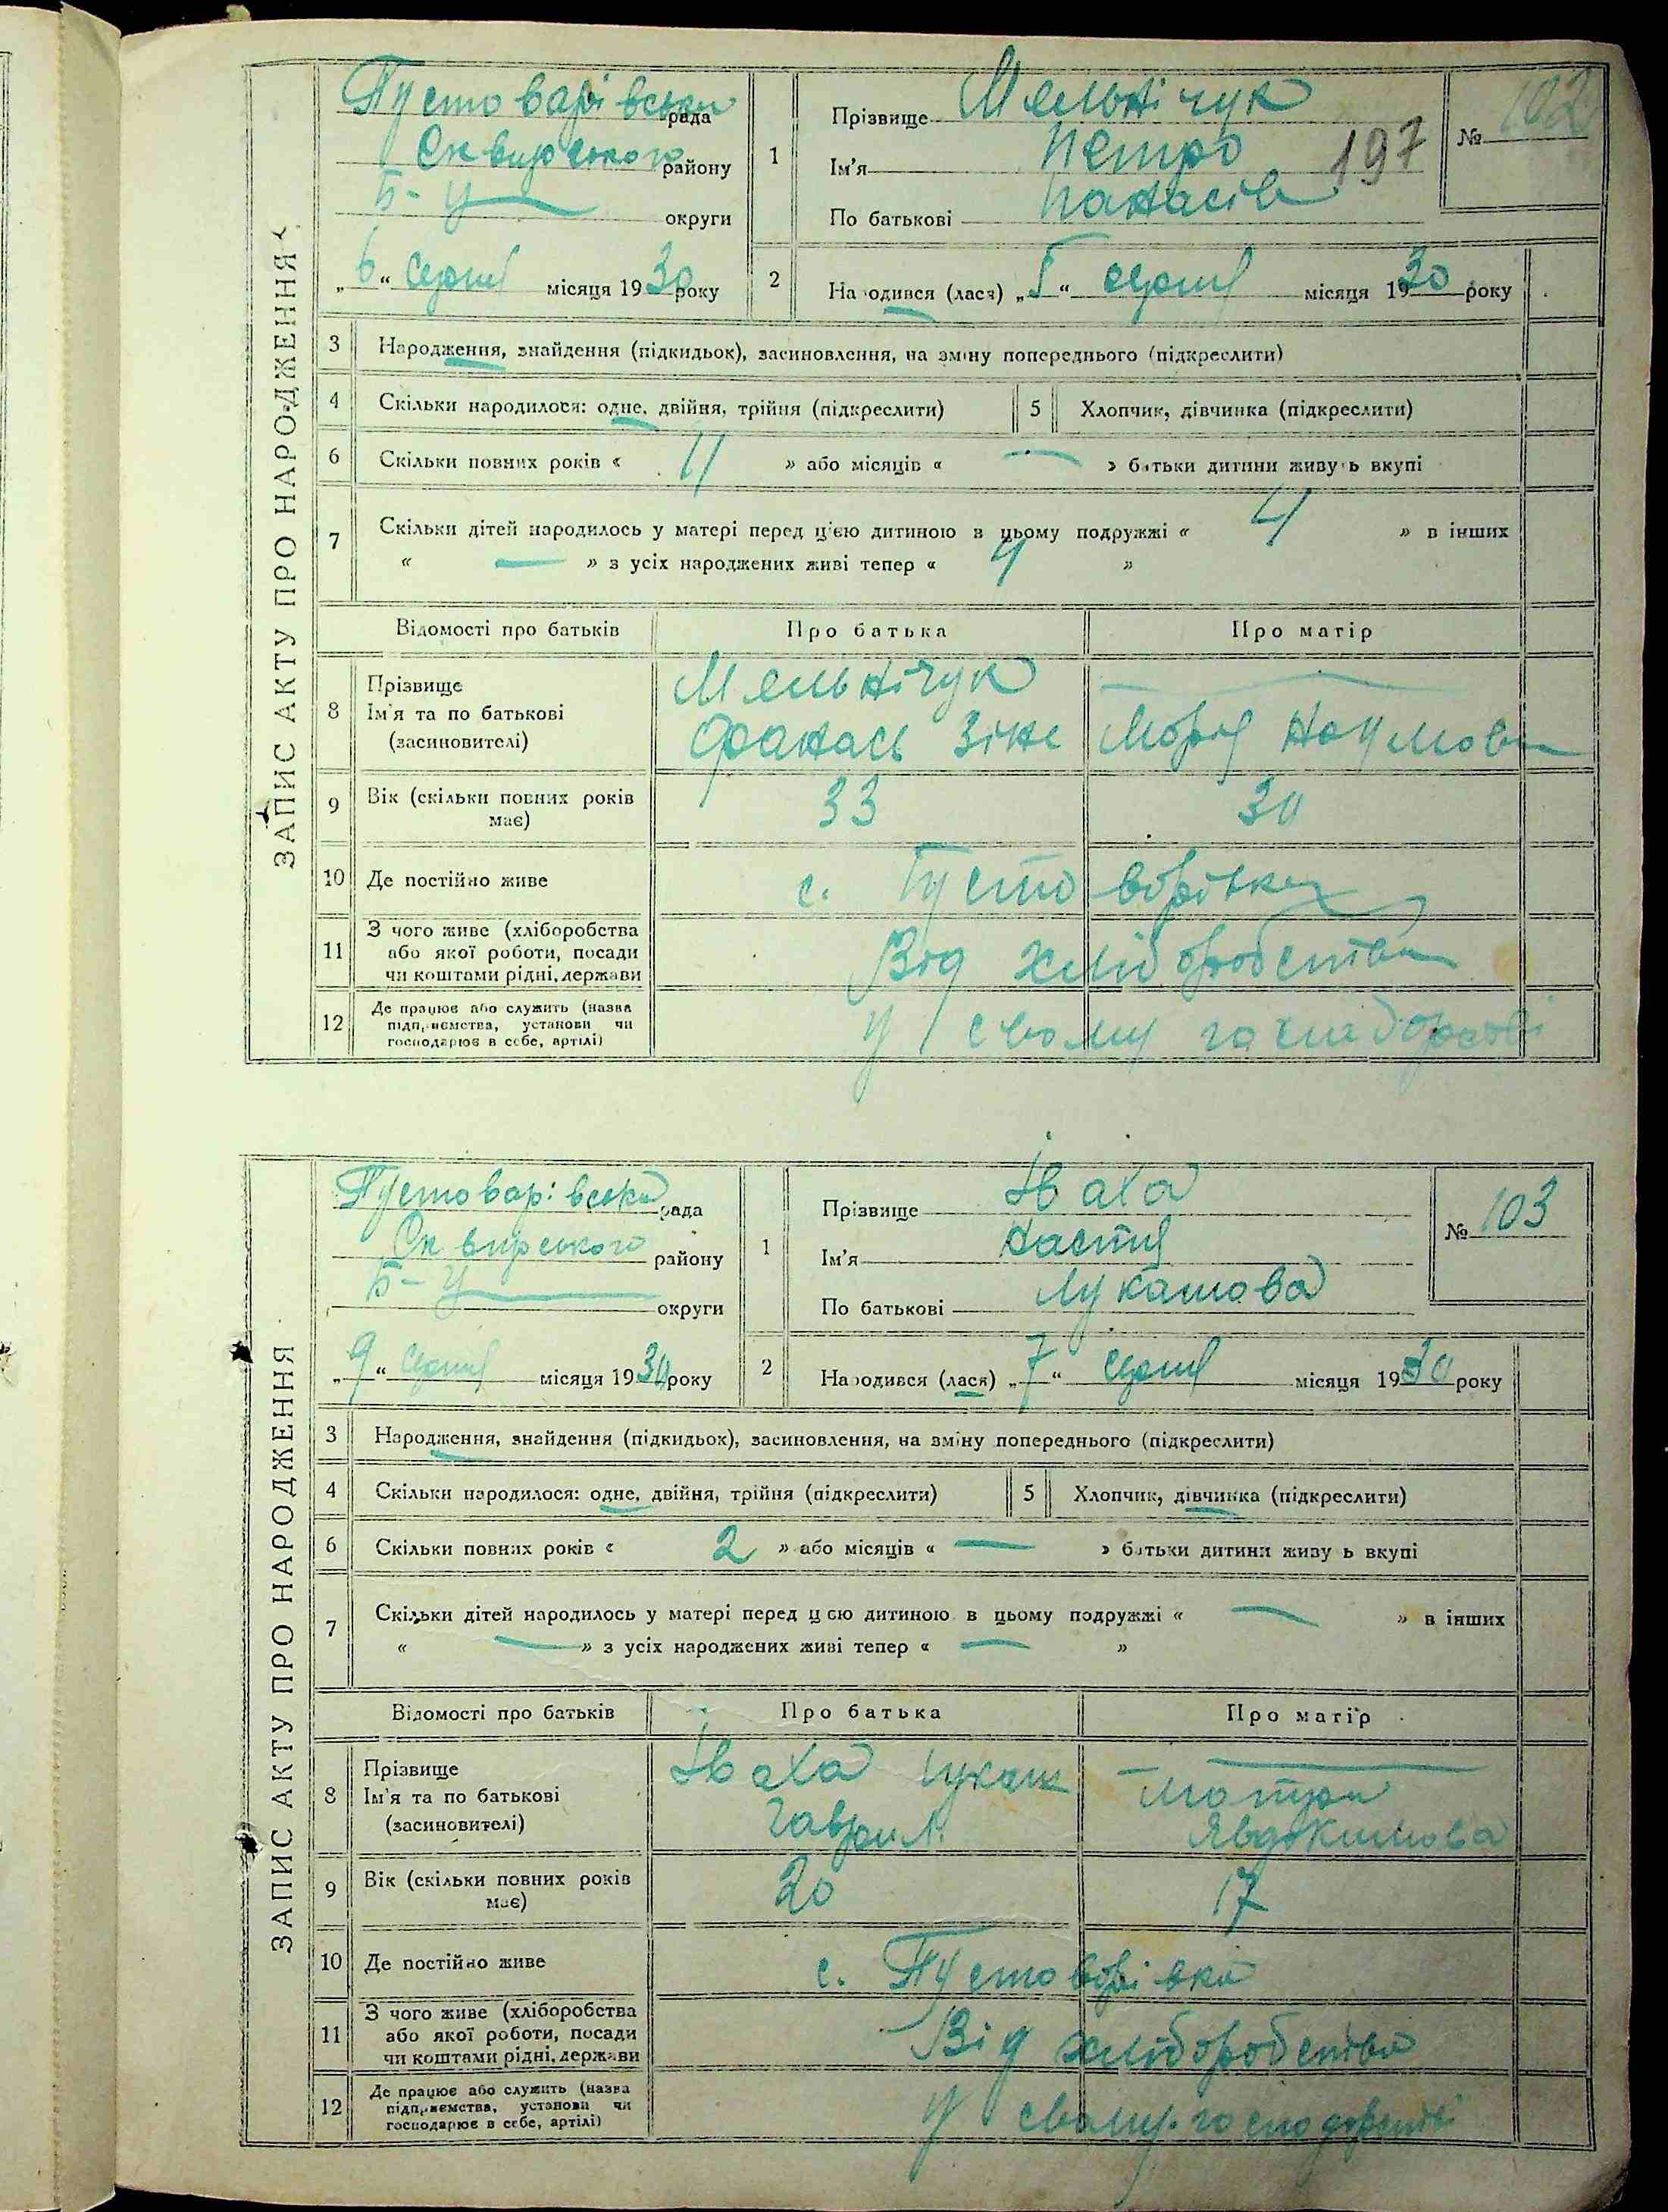 ЗАПИС АКТУ ПРО НАРОДЖЕННЯ
Пустоварівська рада
Сквирського району
Б-Ц округи
„6“ серпня місяця 1930 року
1
Прізвище Мельнічук
Ім'я Петро
По батькові Панасів
197
№ 102
2
Народився (лася) „5“ серпня місяця 1930 року
3 Народження, знайдення (підкидьок), засиновлення, на зміну попереднього (підкреслити)
4 Скільки народилося: одне, двійня, трійня (підкреслити) 5 Хлопчик, дівчинка (підкреслити)
6 Скільки повних років « 11 » або місяців « — » батьки дитини живуть вкупі
7 Скільки дітей народилось у матері перед ц'єю дитиною в цьому подружжі « 4 » в інших
« — » з усіх народжених живі тепер « 4 »
Відомості про батьків Про батька Про матір
8 Прізвище
Ім'я та по батькові
(засиновителі)
Мельнічук
Фанась Зіне
— Марія Наумовна
9 Вік (скільки повних років має) 33 30
10 Де постійно живе с. Пустоварівка
11 З чого живе (хліборобства
або якої роботи, посади
чи коштами рідні, держави
Від хліборобства
12 Де працює або служить (назва
підприємства, установи чи
господарює в себе, артілі)
у свому господарстві
ЗАПИС АКТУ ПРО НАРОДЖЕННЯ
Пустоварівська рада
Сквирського району
Б-Ц округи
„9“ серпня місяця 1930 року
1
Прізвище Іваха
Ім'я Настя
По батькові Лукашова
№ 103
2
Народився (лася) „7“ серпня місяця 1930 року
3 Народження, знайдення (підкидьох), засиновлення, на зміну попереднього (підкреслити)
4 Скільки народилося: одне, двійня, трійня (підкреслити) 5 Хлопчик, дівчинка (підкреслити)
6 Скільки повних років « 2 » або місяців « — » батьки дитини живуть вкупі
7 Скільки дітей народилось у матері перед цєю дитиною в цьому подружжі « — » в інших
« — » з усіх народжених живі тепер « — »
Відомості про батьків Про батька Про матір
8 Прізвище
Ім'я та по батькові
(засиновителі)
Іваха Лукаш
Гаврил.
— Мотря
Явдокимова
9 Вік (скільки повних років має) 20 17
10 Де постійно живе с. Пустоварівка
11 З чого живе (хліборобства
або якої роботи, посади
чи коштами рідні, держави
Від хліборобства
12 Де працює або служить (назва
підприємства, установи чи
господарює в себе, артілі)
у свому господарстві